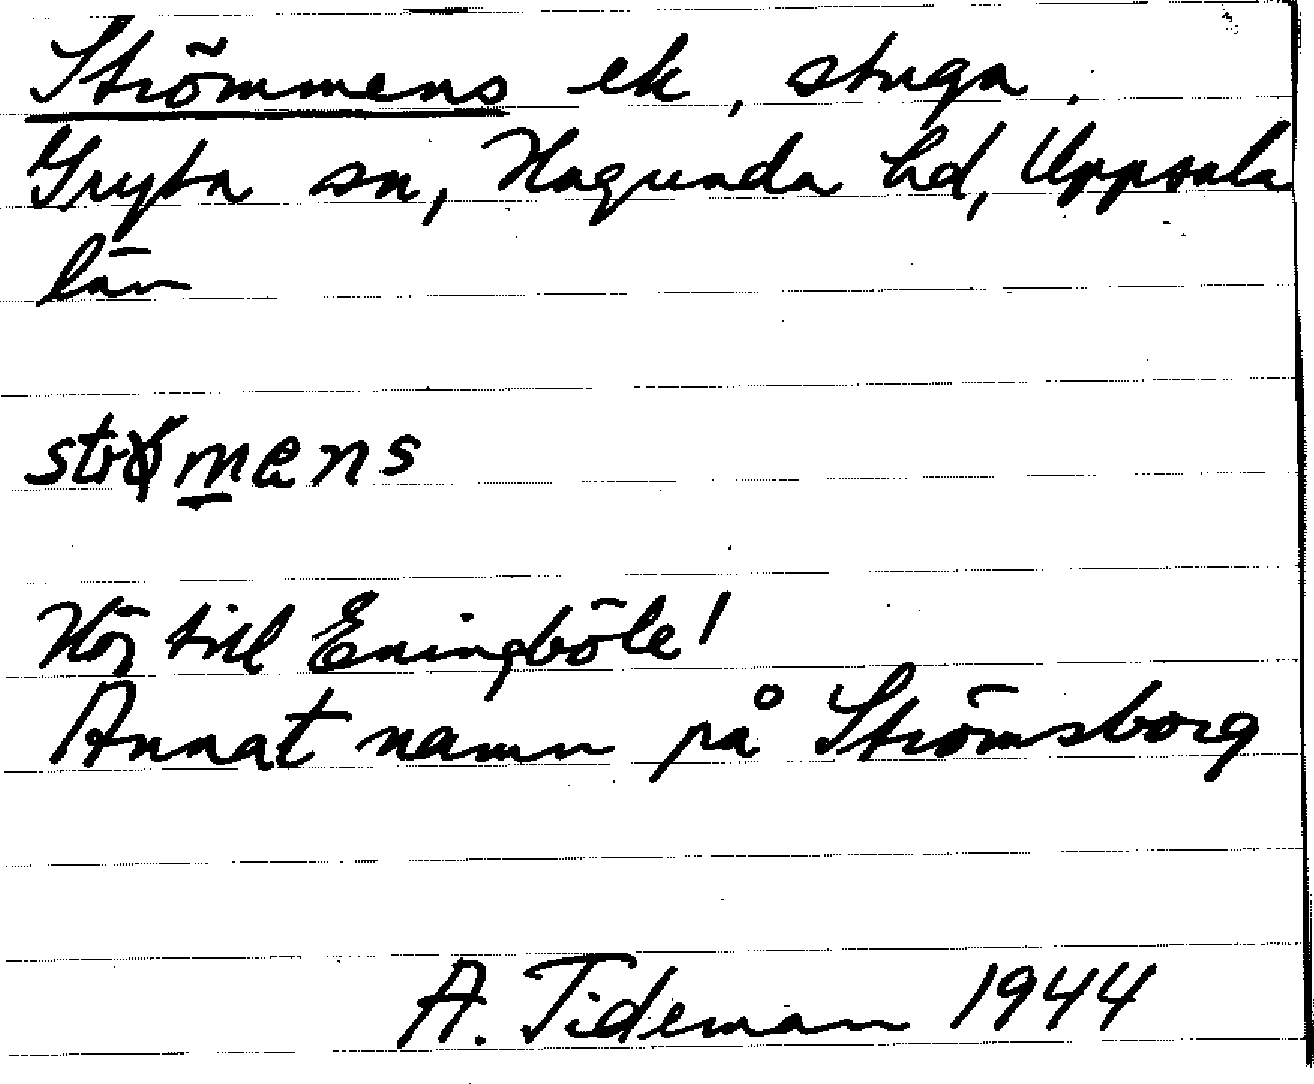 Strömmens ek, stuga.
Gryta sn, Hagunda hd, Uppsala
län
strømens
Hör till Eningböle!
Annat namn på Strömsborg
A. Tideman 1944